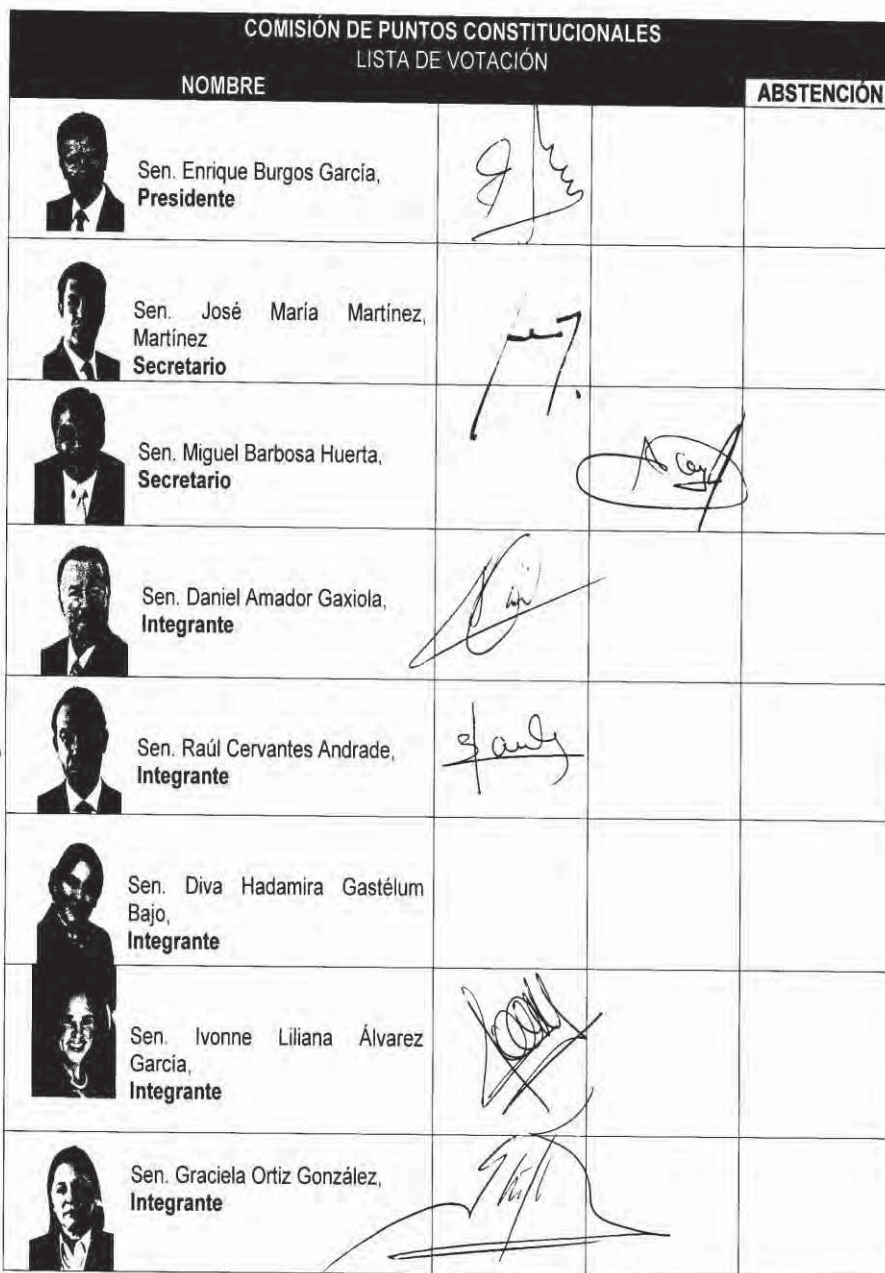 COMISIÓN DE PUNTOS CONSTITUCIONALES
LISTA DE VOTACIÓN
NOMBRE
ABSTENCIÓN
Sen. Enrique Burgos García,
Presidente
Sen. José María Martínez,
Martínez
Secretario
Sen. Miguel Barbosa Huerta,
Secretario
Sen. Daniel Amador Gaxiola,
Integrante
Sen. Raúl Cervantes Andrade,
Integrante
Sen. Diva Hadamira Gastélum
Bajo,
Integrante
Sen. Ivonne Liliana Álvarez
García,
Integrante
Sen. Graciela Ortiz González,
Integrante